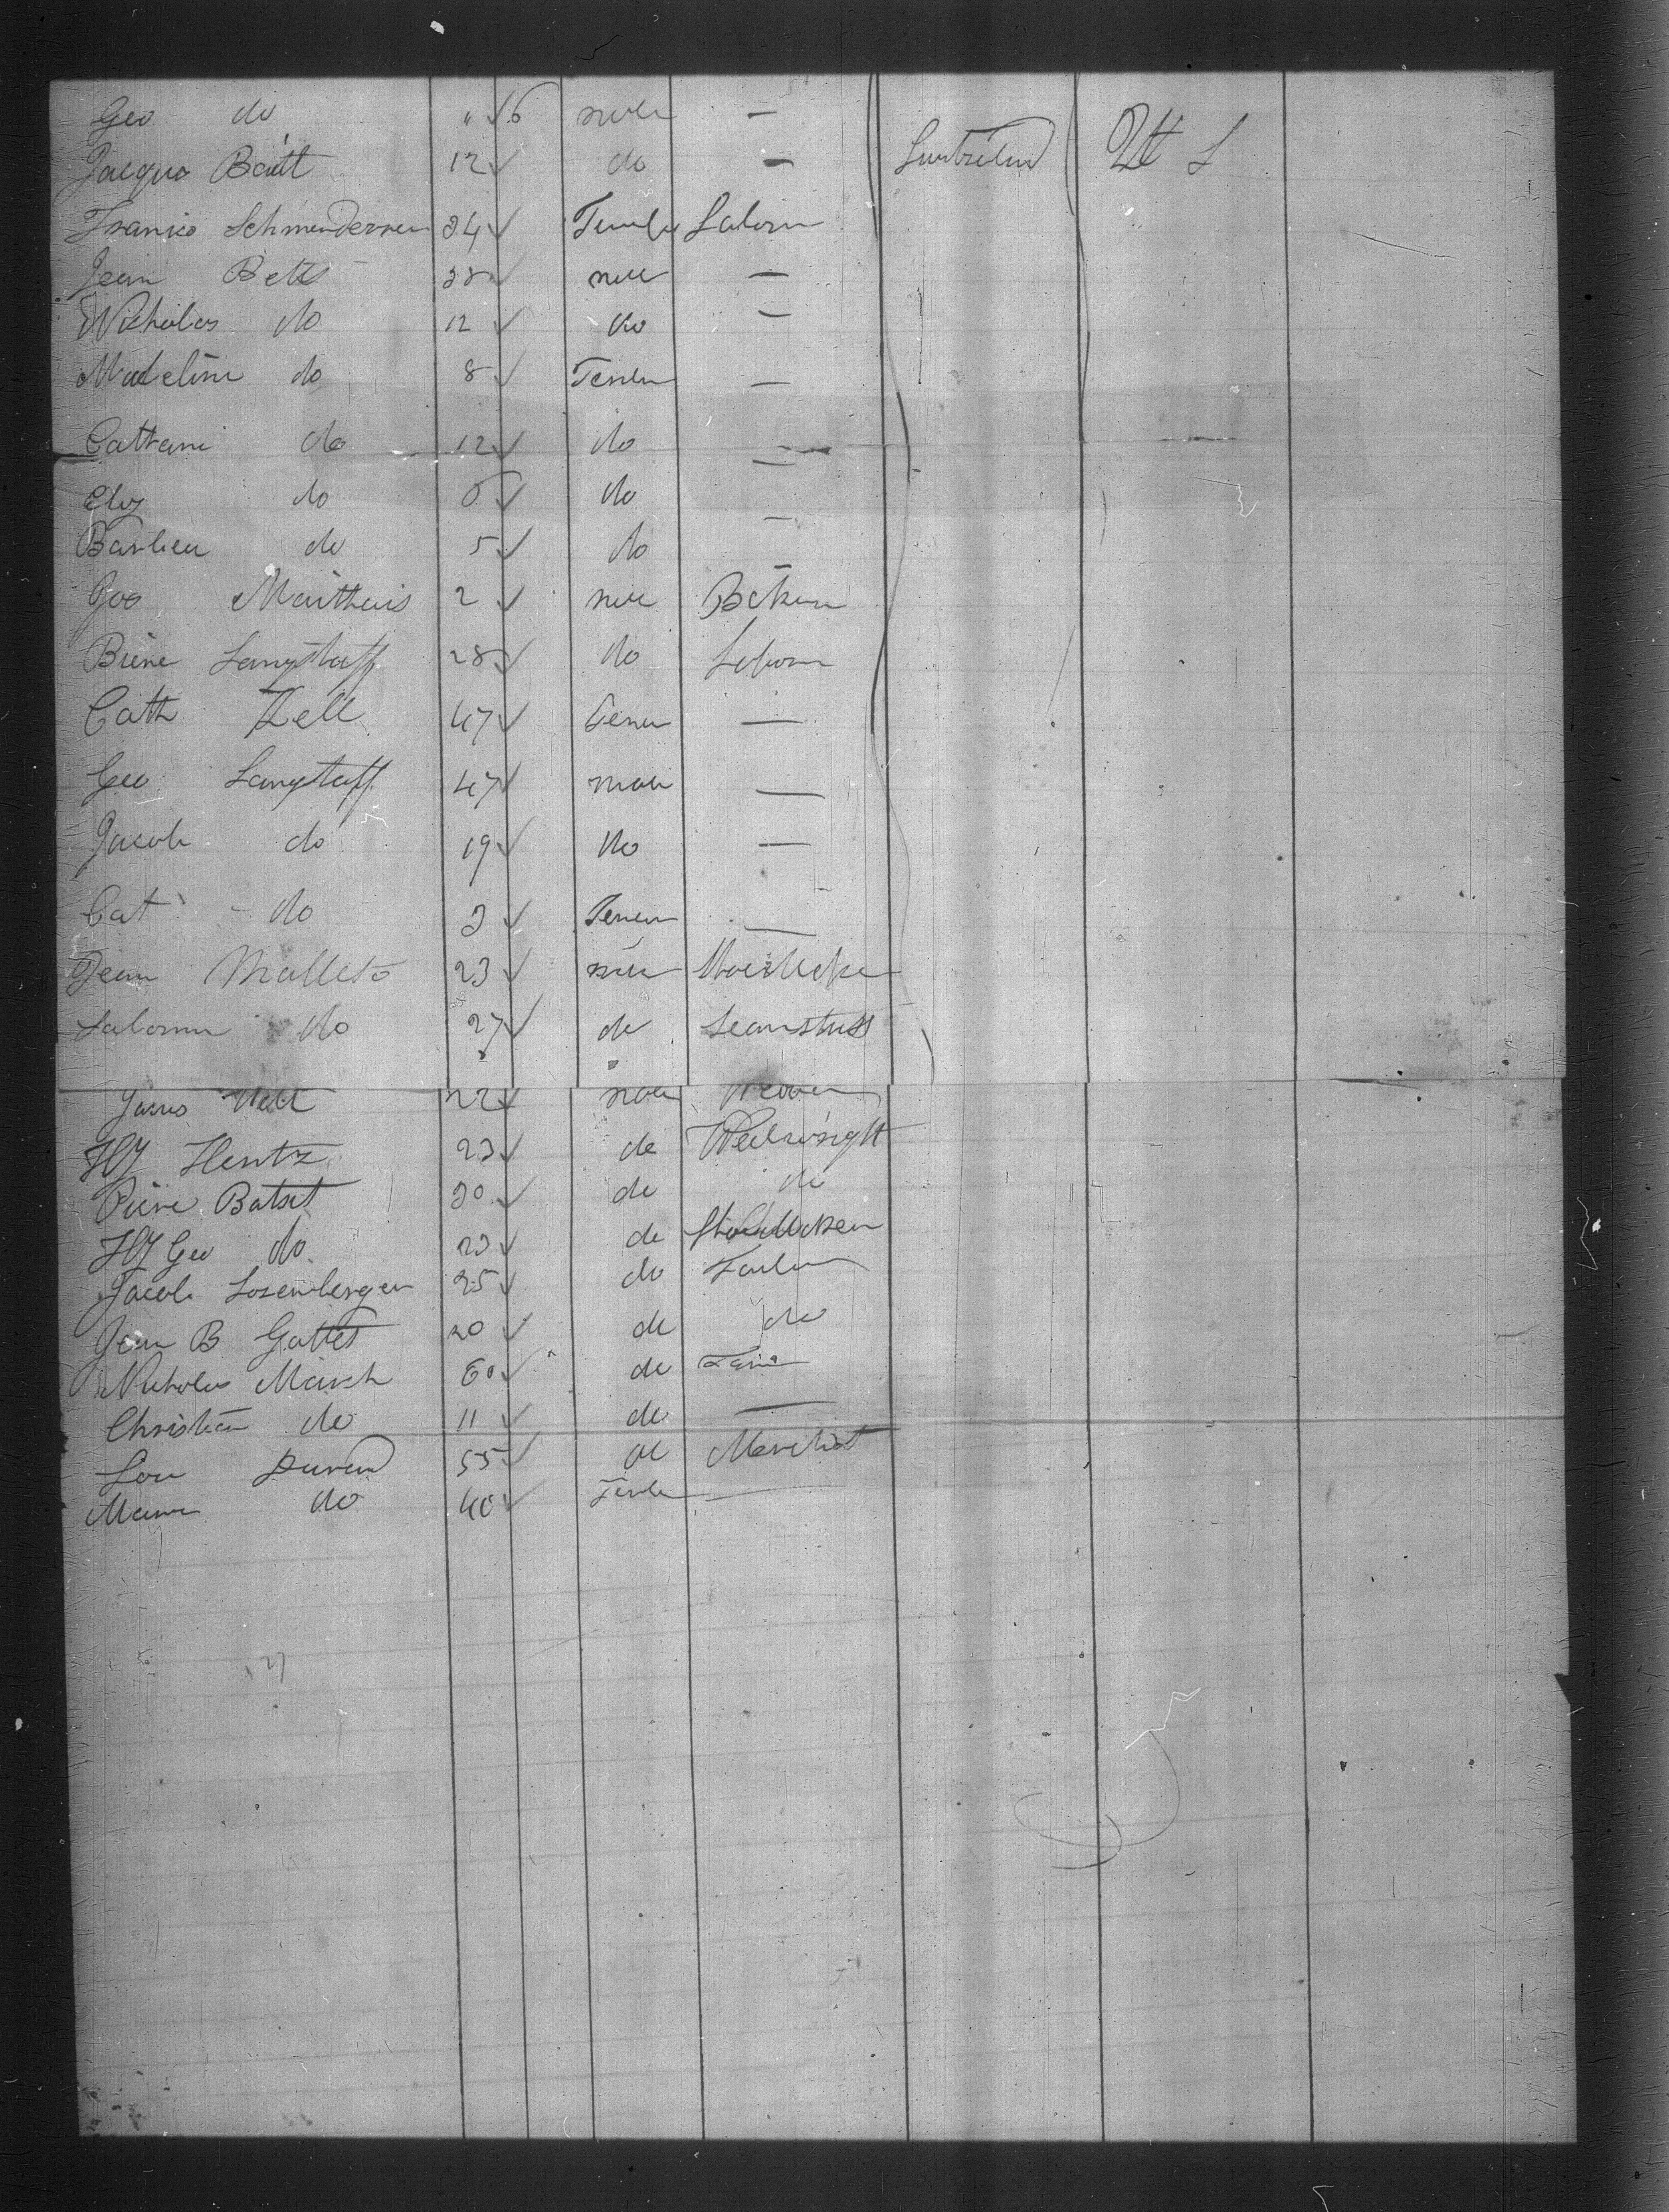 Geo do " 6 male —
Jacque Bait 12 do — Switzerland U S
Francis Schmenderren 34 Female Laborer
Jean Betts 38 male —
Nicholas do 12 do —
Madeline do 8 Female —
Cattrani do 12 do —
Eliz do 6 do —
Barbiea do 5 do —
Geo Matthuis 2 male Baker
Piere Langstaff 28 do Laborer
Cath Zell 47 Female —
Geo Langstaff 47 male —
Jacob do 19 do —
Cat do 3 Female —
Jean Malleto 23 male Shoemaker
Salomon do 27 do Seamstress
James Well 22 male Weaver
HY Hentz 23 do Weelwright
Piere Batset 30 do do
HY Geo do 23 do Shoemaker
Jacob Losenberger 25 do
Jean B Gattet 20 do do
Nicholas March 60 do
Christian do 11 do —
Lou Durand 55 do Merchant
do 40 Female —
27